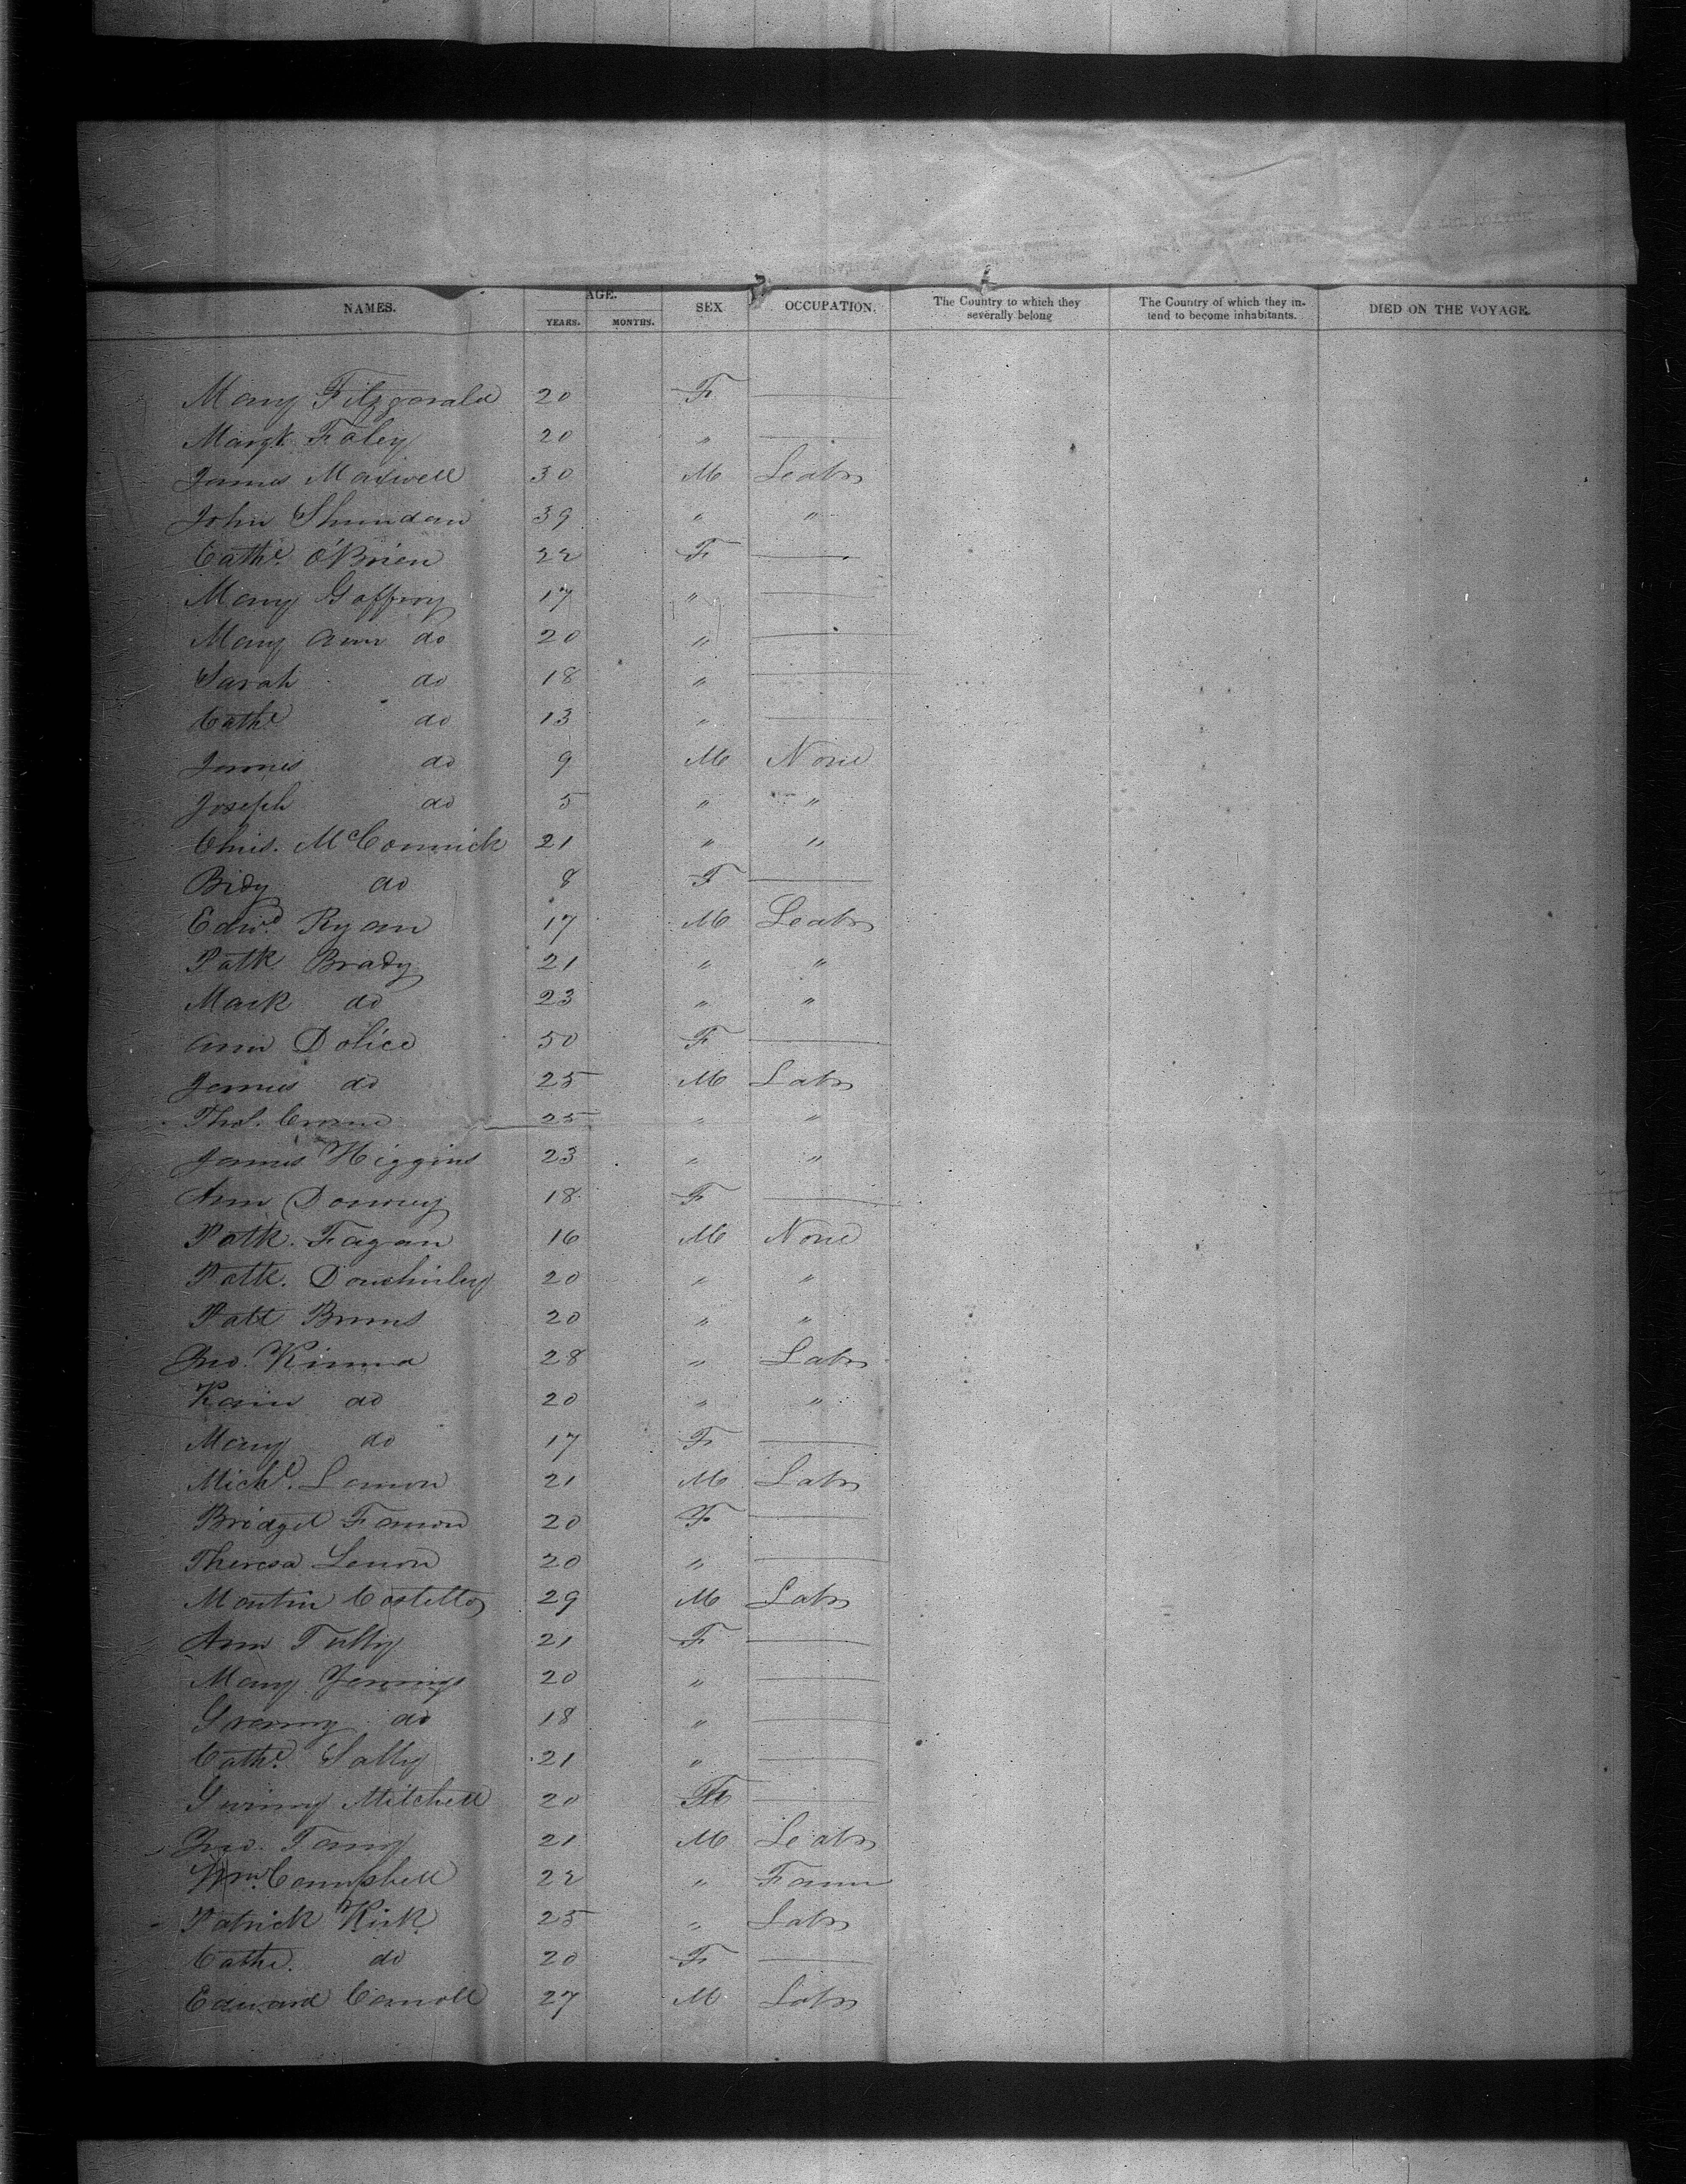 NAMES. AGE. SEX OCCUPATION. The Country to which they severally belong The Country of which they intend to become inhabitants. DIED ON THE VOYAGE.
YEARS. MONTHS.
Mary Fitzgerald 20 F —
Margt Foley 20 " —
James Maxwell 30 M Leabr
John 39 " "
Cathe O'Brien 22 F —
Mary Gaffney 17 " —
Mary Ann do 20 " —
Sarah do 18 " —
Cathe do 13 " —
James do 9 M None
Joseph do 5 " "
Chris. McCormick 21 " "
Bidy do 8 F —
Edwd Ryan 17 M Leabr
Patk Brady 21 " "
Mark do 23 " "
Ann Dolice 50 F —
James do 25 M Labr
Thos. 25 " "
James Higgins 23 " "
Ann 18 F —
Patk. Fagan 16 M None
Patk. 20 " "
Patt Burns 20 " "
Jno. Kinna 28 " Labr
do 20 " "
Mary do 17 F —
Michl. 21 M Labr
Bridget 20 F —
Theresa Lenon 20 " —
Martin Costello 29 M Labr
Ann Tully 21 F —
Mary Jennings 20 " —
do 18 " —
Cathe. Sally 21 " —
Mitchell 20 F —
Jno. 21 M Leabr
Wm. Campbell 22 " Farmr
Patrick Kirk 25 " Labr
Cathe. do 20 F —
Edward Carroll 27 M Labr